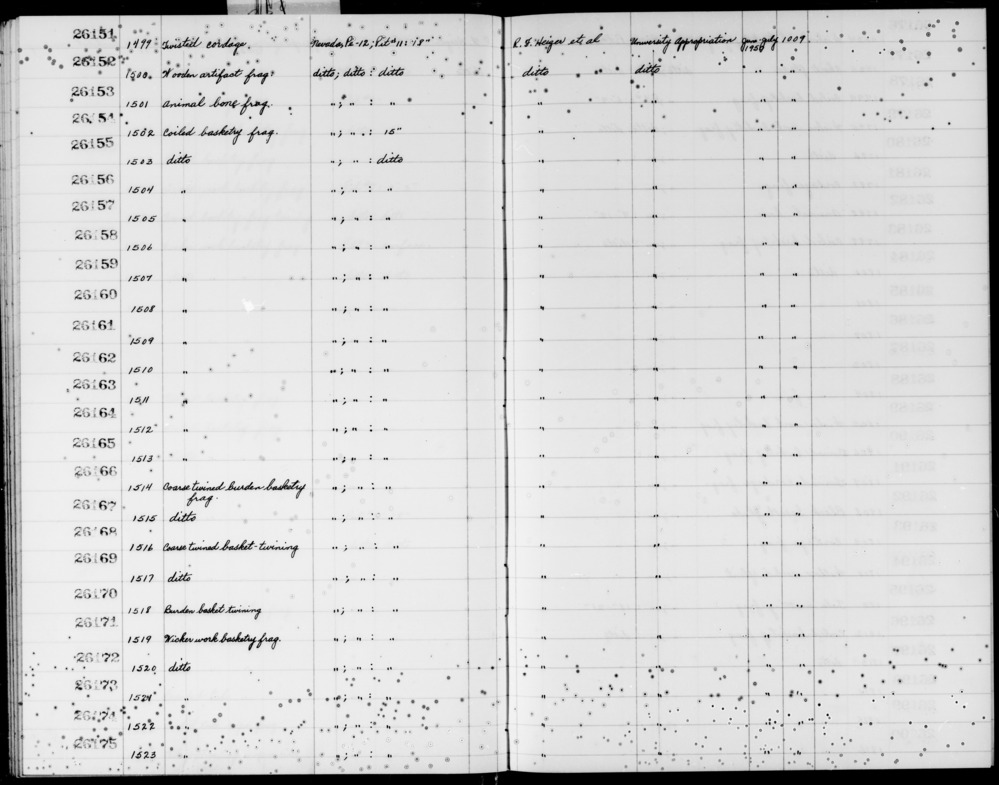 26151 1499 Twisted cordage. Nevada, Pe-12; Pit #11: 18" R. F. Heizer et al University Appropriation June-July 1950 1009
26152 1500 Wooden artifact frag. ditto; ditto : ditto ditto ditto " "
26153 1501 Animal bone frag. " ; " : " " " " "
26154 1502 Coiled basketry frag. " ; " : 15" " " " "
26155 1503 ditto " ; " : ditto " " " "
26156 1504 " " ; " : " " " " "
26157 1505 " " ; " : " " " " "
26158 1506 " " ; " : " " " " "
26159 1507 " " ; " : " " " " "
26160 1508 " " ; " : " " " " "
26161 1509 " " ; " : " " " " "
26162 1510 " " ; " : " " " " "
26163 1511 " " ; " : " " " " "
26164 1512 " " ; " : " " " " "
26165 1513 " " ; " : " " " " "
26166 1514 Coarse twined burden basketry " ; " : " " " " "
frag.
26167 1515 ditto " ; " : " " " " "
26168 1516 Coarse twined basket-twining " ; " : " " " " "
26169 1517 ditto " ; " : " " " " "
26170 1518 Burden basket twining " ; " : " " " " "
26171 1519 Wicker work basketry frag. " ; " : " " " " "
26172 1520 ditto " ; " : " " " " "
26173 1521 " " ; " : " " " " "
26174 1522 " " ; " : " " " " "
26175 1523 " " ; " : " " " " "